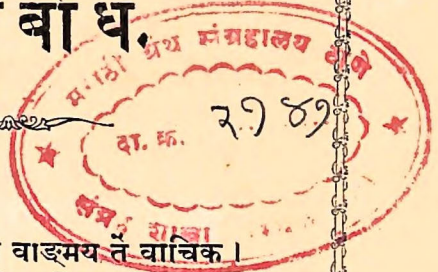 बोध.
मराठी ग्रंथ संग्रहालय ठाणे
दा. क्र. २१४१
शाखा
वाङ्मय तें वाचिक ।